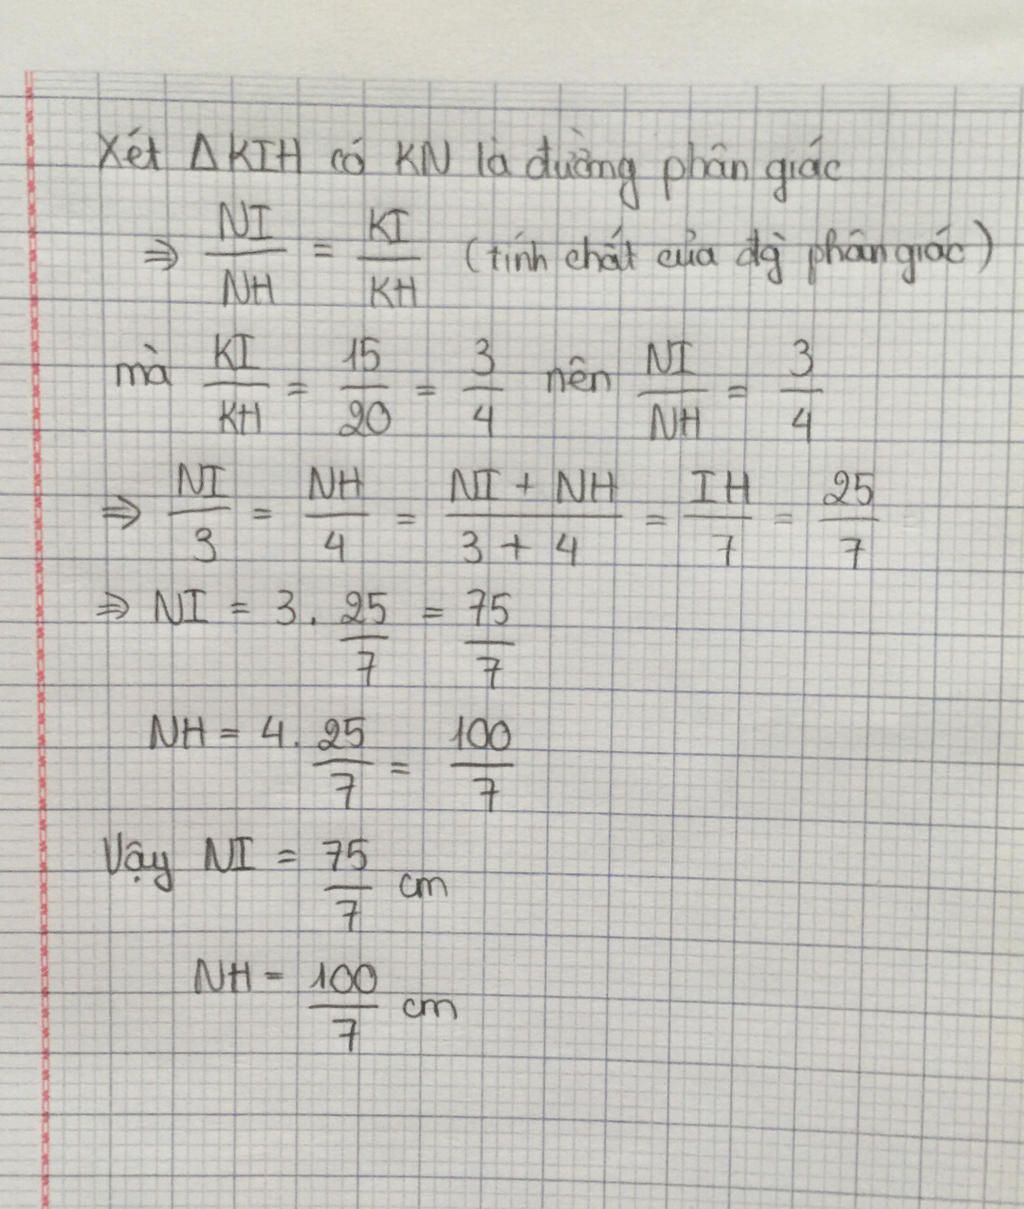 Xét ΔKIH có KN là đường phân giác
⇒ NI/NH = KI/KH (tính chất của đg phân giác)
mà KI/KH = 15/20 = 3/4 nên NI/NH = 3/4
⇒ NI/3 = NH/4 = NI + NH/3 + 4 = IH/7 = 25/7
⇒ NI = 3. 25/7 = 75/7
NH = 4. 25/7 = 100/7
Vậy NI = 75/7 cm
NH = 100/7 cm